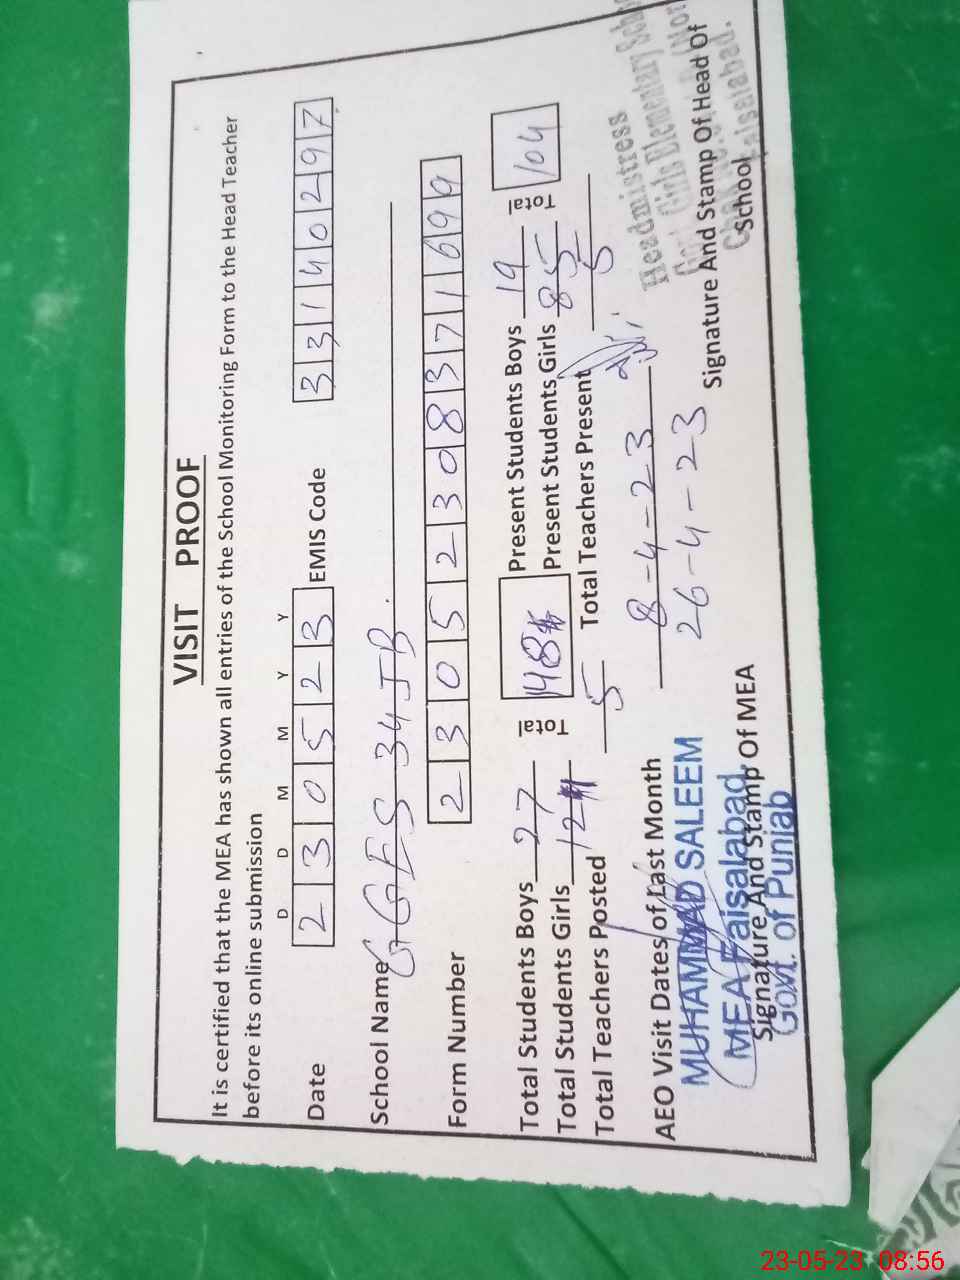 VISIT PROOF
It is certified that the MEA has shown all entries of the School Monitoring Form to the Head Teacher
before its online submission
D D M M Y Y
Date 2 3 0 5 2 3 EMIS Code 3 3 1 4 0 2 9 7
School Name GGES 34 JB.
Form Number 2 3 0 5 2 3 0 8 3 7 1 6 9 9
Total Students Boys 27 Total 148 Present Students Boys 19 Total 104
Total Students Girls Present Students Girls 85
Total Teachers Posted 5 Total Teachers Present 5
AEO Visit Dates of Last Month 8-4-23
26-4-23
MUHAMMAD SALEEM
MEA Faisalabad
Govt. of Punjab
Signature And Stamp Of MEA
Headmistress
Girls Elementary
Faisalabad.
Signature And Stamp Of Head Of
School
23-05-23 08:56